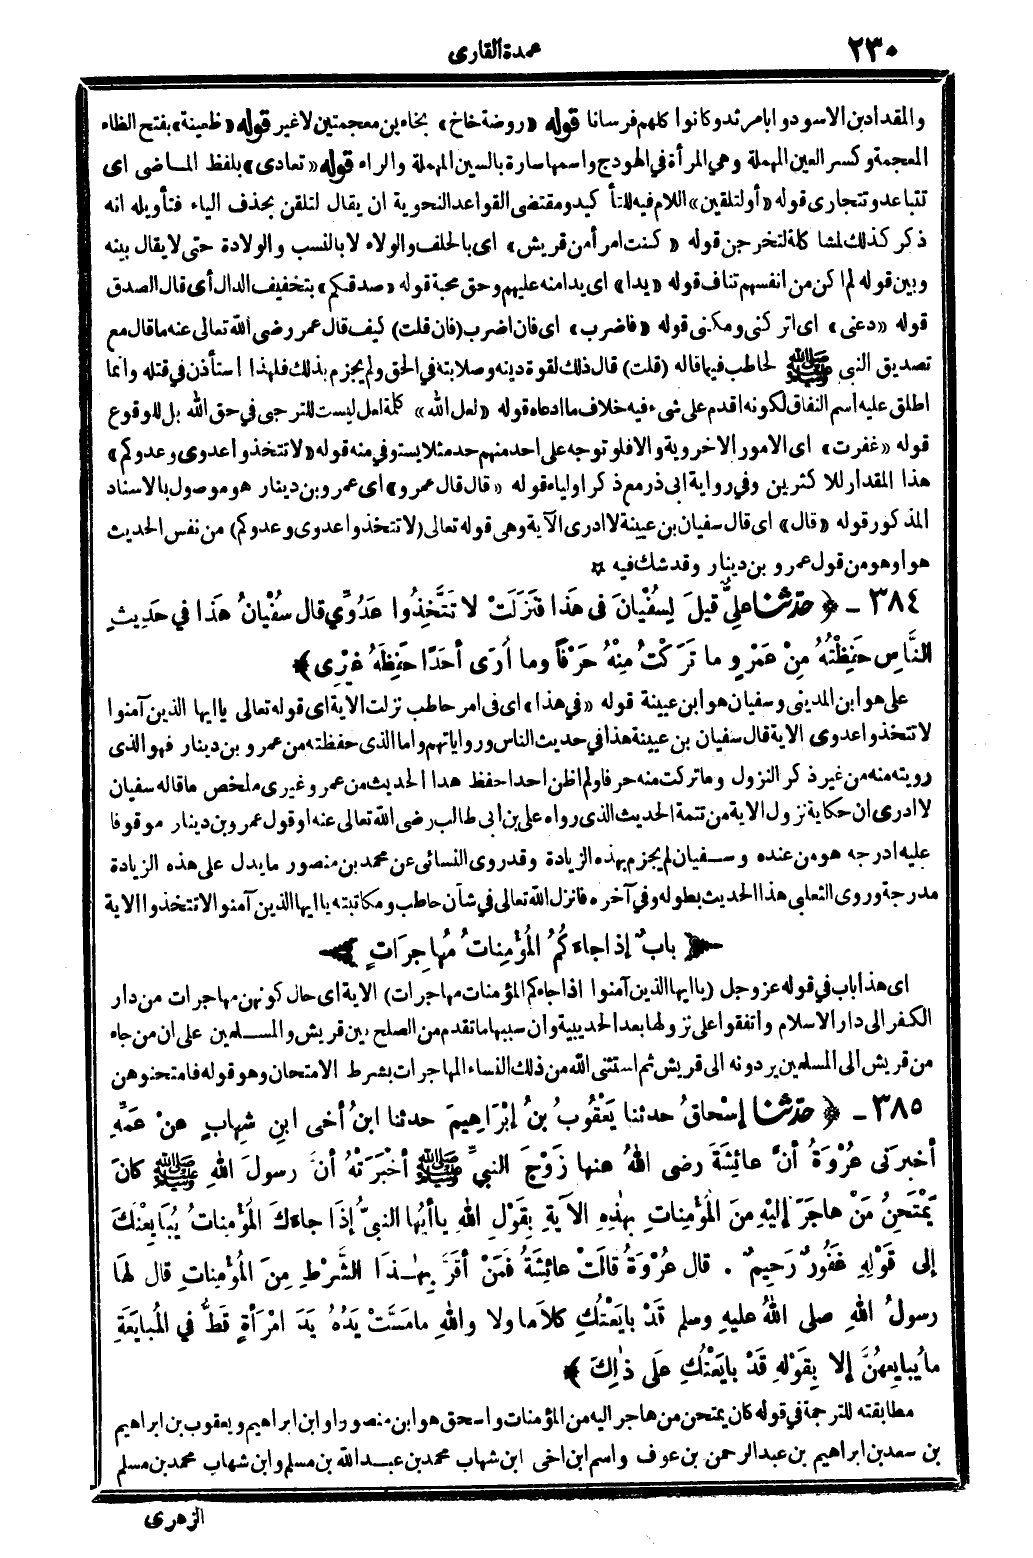 ٢٣٠ عمدة القارى
والمقداد بن الاسود وابا مرثد وكانوا كلهم فرسانا قوله «روضة خاخ» بخاءين معجمتين لا غير قوله «ظعينة» بفتح الظاء
المعجمة وكسر العين المهملة وهي المرأة في الهودج واسمها سارة بالسين المهملة والراء قوله «تعادى» بلفظ الماضى اى
تتباعد وتتجارى قوله «أولتلقين» اللام فيه للتأكيد ومقتضى القواعد النحوية ان يقال لتلقن بحذف الياء فتأويله انه
ذكر كذلك لمشاكلة لتخرجن قوله «كنت امرأ من قريش» اى بالحلف والولاء لا بالنسب والولادة حتى لا يقال بينه
وبين قوله لم اكن من انفسهم تناف قوله «يدا» اى يد امنه عليهم وحق محبة قوله «صدقكم» بتخفيف الدال أى قال الصدق
قوله «دعنى» اى اتركنى ومكنى قوله «فاضرب» اى فان اضرب (فان قلت) كيف قال عمر رضى الله تعالى عنه ما قال مع
تصديق النبى ﷺ لحاطب فيما قاله (قلت) قال ذلك لقوة دينه وصلابته في الحق ولم يجزم بذلك فلهذا استأذن في قتله وانما
اطلق عليه اسم النفاق لكونه اقدم على شىء فيه خلاف ما ادعاه قوله «لعل الله» كلمة لعل ليست للترجى في حق الله بل للوقوع
قوله «غفرت» اى الامور الاخروية والا فلو توجه على احد منهم حد مثلا يستوفي منه قوله «لا تتخذوا عدوى وعدوكم»
هذا المقدار للاكثرين وفي رواية ابى ذر مع ذكر اولياء قوله «قال قال عمرو» اى عمرو بن دينار هو موصول بالاسناد
المذكور قوله «قال» اى قال سفيان بن عيينة لا ادرى الآية وهى قوله تعالى (لا تتخذوا عدوى وعدوكم) من نفس الحديث
هو او هو من قول عمرو بن دينار وقد شك فيه ✡
٣٨٤ - ﴿ حدّثنا عليٌّ قيلَ لِسُفْيانَ فى هَذا فَنَزَلَتْ لا تَتَّخِذُوا عَدُوِّي قال سُفْيانُ هَذا في حَدِيثِ
النَّاسِ حَفِظْتُهُ مِنْ عَمْرٍو ما تَرَكْتُ مِنْهُ حَرْفًا وما أُرَى أحَدًا حَفِظَهُ غَيْرِى ﴾
على هو ابن المدينى وسفيان هو ابن عيينة قوله «في هذا» اى فى امر حاطب نزلت الاية اى قوله تعالى يا ايها الذين آمنوا
لا تتخذوا عدوى الاية قال سفيان بن عيينة هذا في حديث الناس ورواياتهم واما الذى حفظته من عمرو بن دينار فهو الذى
رويته منه من غير ذكر النزول وما تركت منه حرفا ولم اظن احدا حفظ هذا الحديث من عمرو غيرى ملخص ما قاله سفيان
لا ادرى ان حكاية نزول الاية من تتمة الحديث الذى رواه على بن ابى طالب رضى الله تعالى عنه او قول عمرو بن دينار موقوفا
عليه ادرجه هو من عنده وسفيان لم يجزم بهذه الزيادة وقد روى النسائى عن محمد بن منصور ما يدل على هذه الزيادة
مدرجة وروى الثعلبى هذا الحديث بطوله وفي آخره فانزل الله تعالى في شأن حاطب ومكاتبته يا ايها الذين آمنوا لا تتخذوا الاية
﴿ بابٌ إذا جاءَكُمُ المُؤْمِناتُ مُهاجِرَاتٍ ﴾
اى هذا باب في قوله عز وجل (يا ايها الذين آمنوا اذا جاءكم المؤمنات مهاجرات) الاية اى حال كونهن مهاجرات من دار
الكفر الى دار الاسلام واتفقوا على نزولها بعد الحديبية وان سببها ما تقدم من الصلح بين قريش والمسلمين على ان من جاء
من قريش الى المسلمين يردونه الى قريش ثم استثنى الله من ذلك النساء المهاجرات بشرط الامتحان وهو قوله فامتحنوهن
٣٨٥ - ﴿ حدّثنا إسْحاقُ حدثنا يَعْقُوبُ بنُ إبْرَاهِيمَ حدثنا ابنُ أخى ابنِ شِهابٍ عنْ عَمِّهِ
أخبرَنى عُرْوَةُ أنَّ عائِشَةَ رضى اللهُ عنها زَوْجَ النبيِّ ﷺ أخْبَرَتْهُ أنَّ رسولَ اللهِ ﷺ كانَ
يَمْتَحِنُ مَنْ هاجَرَ إلَيْهِ مِنَ المُؤْمِناتِ بِهٰذِهِ الآيَةِ بِقَوْلِ اللهِ ياأيُّها النبىُّ إذَا جاءَكَ المُؤْمِناتُ يُبَايِعْنَكَ
إلى قَوْلِهِ غَفُورٌ رَحِيمٌ . قال عُرْوَةُ قالَتْ عائِشَةُ فَمَنْ أقَرَّ بِهٰذا الشَّرْطِ مِنَ المُؤْمِناتِ قال لَها
رسولُ اللهِ صلى اللهُ عليهِ وسلم قَدْ بايَعْتُكِ كَلاَما ولا واللهِ مامَسَّتْ يَدُهُ يَدَ امْرَأةٍ قَطُّ في المُبايَعَةِ
ما يُبايِعُهُنَّ إلا بِقَوْلِهِ قَدْ بايَعْتُكِ عَلَى ذٰلِكَ ﴾
مطابقته للترجمة في قوله كان يمتحن من هاجر اليه من المؤمنات واسحق هو ابن منصور او ابن ابراهيم ويعقوب بن ابراهيم
بن سعد بن ابراهيم بن عبد الرحمن بن عوف واسم ابن اخى ابن شهاب محمد بن عبد الله بن مسلم وابن شهاب محمد بن مسلم
الزهرى